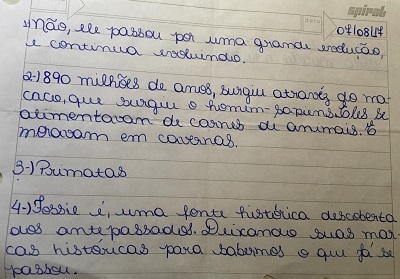 spiral
07/08/17
1-)Não, ele passou por uma grande evolução,
e continua evoluindo.
2-) 890 milhões de anos, surgiu atravéz do ma-
caco, que surgiu o homem-sapiens. Eles se
alimentavam de carnes de animais. E
moravam em cavernas.
3-) Primatas
4-) Fossie é, uma fonte histórica descoberta
dos antepassados. Deixando suas mar-
cas históricas para sabermos o que já se
passou.